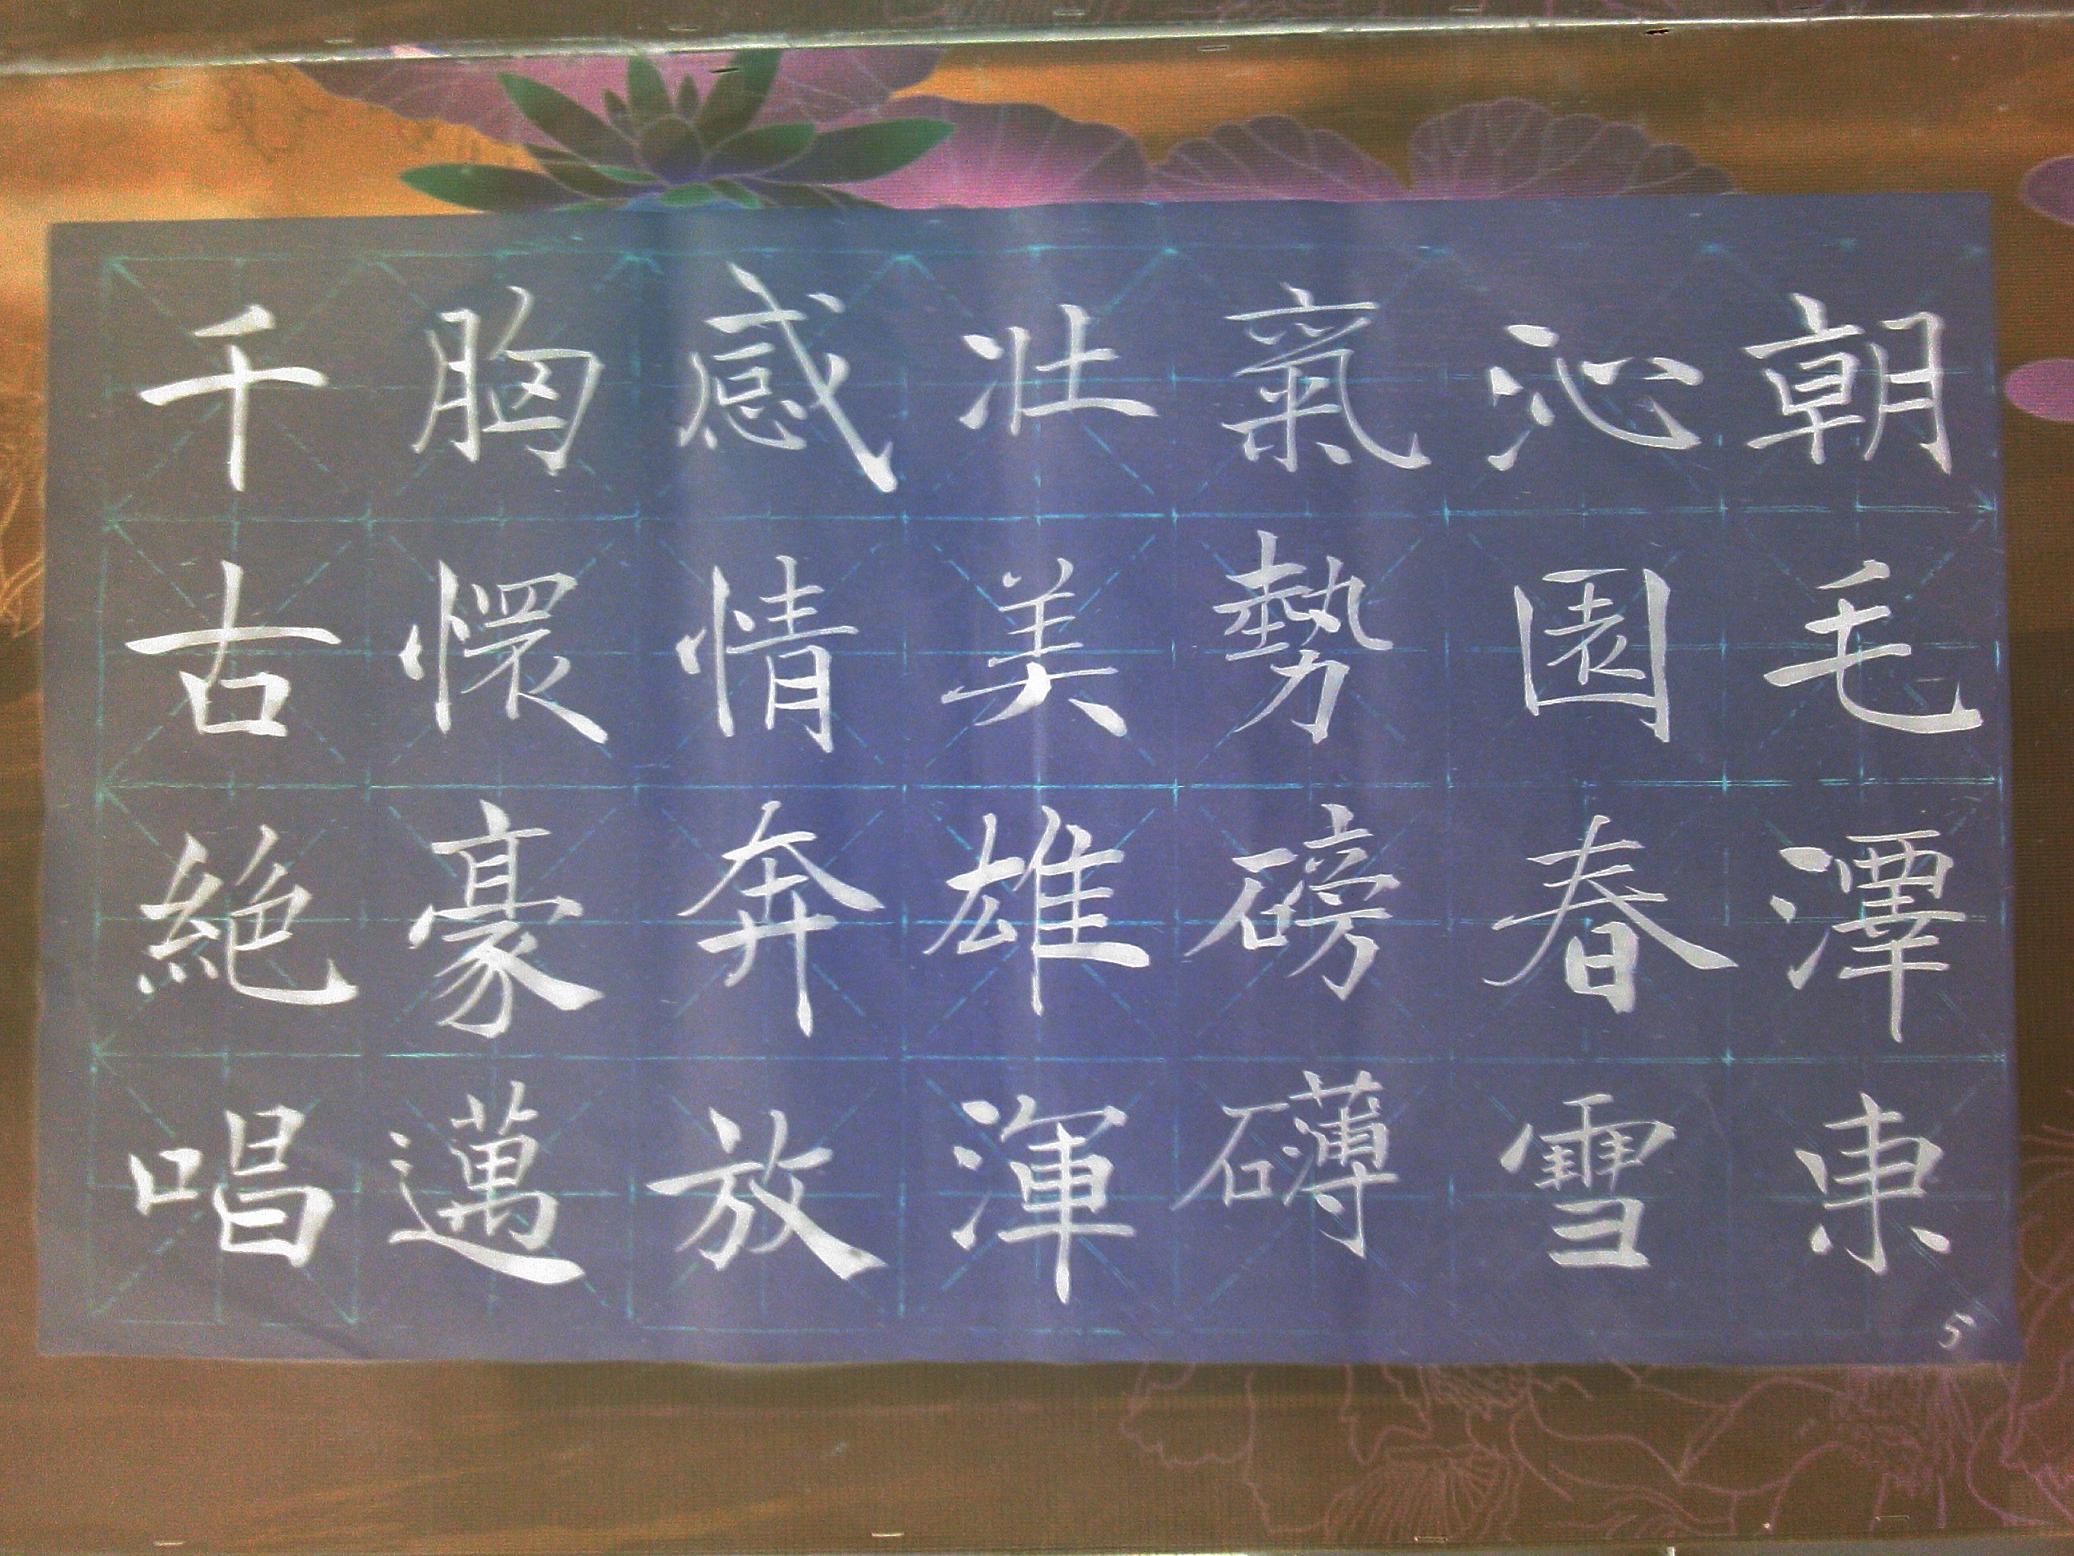 朝毛潭東
沁園春雪
氣勢磅礴
壯美雄渾
感情奔放
胸懷豪邁
千古絕唱
5